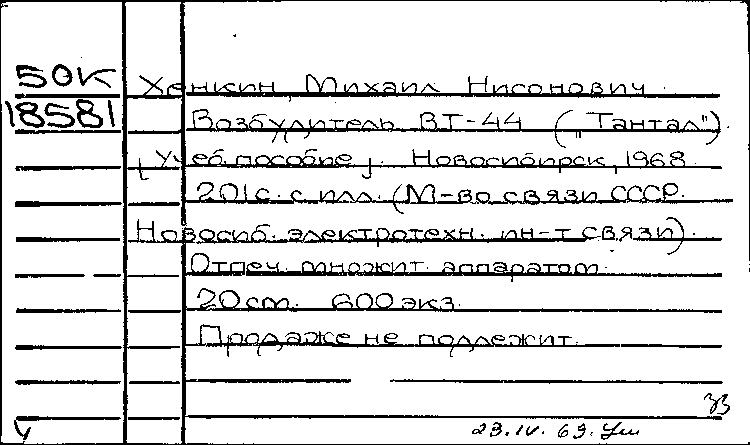 50К Хенкин, Михаил Нисонович.
18581 Возбудитель ВТ-44 ("Тантал").
[Учеб. пособие]. Новосибирск, 1968.
201с. с илл. (М-во связи СССР.
Новосиб. электротехн. ин-т связи).
Отпеч. множит. аппаратом.
20 см. 600 экз.
Продаже не подлежит.
23.IV.69.